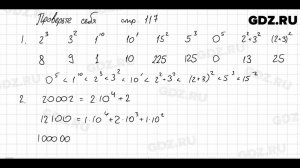 GDZ.RU
Проверьте себя стр. 117
1. 2³ 3² 1¹⁰ 10¹ 15² 5³ 0⁵ 2²+3² (2+3)²
8 9 1 10 225 125 0 13 25
0⁵ < 1¹⁰ < 2³ < 3² < 10¹ < 2²+3² < (2+3)² < 5³ < 15²
2. 20002 = 2·10⁴ + 2
12100 = 1·10⁴ + 2·10³ + 1·10²
100000
GDZ.RU